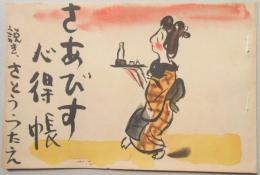 さあびす
心得帳
説き、さとう・つたえ